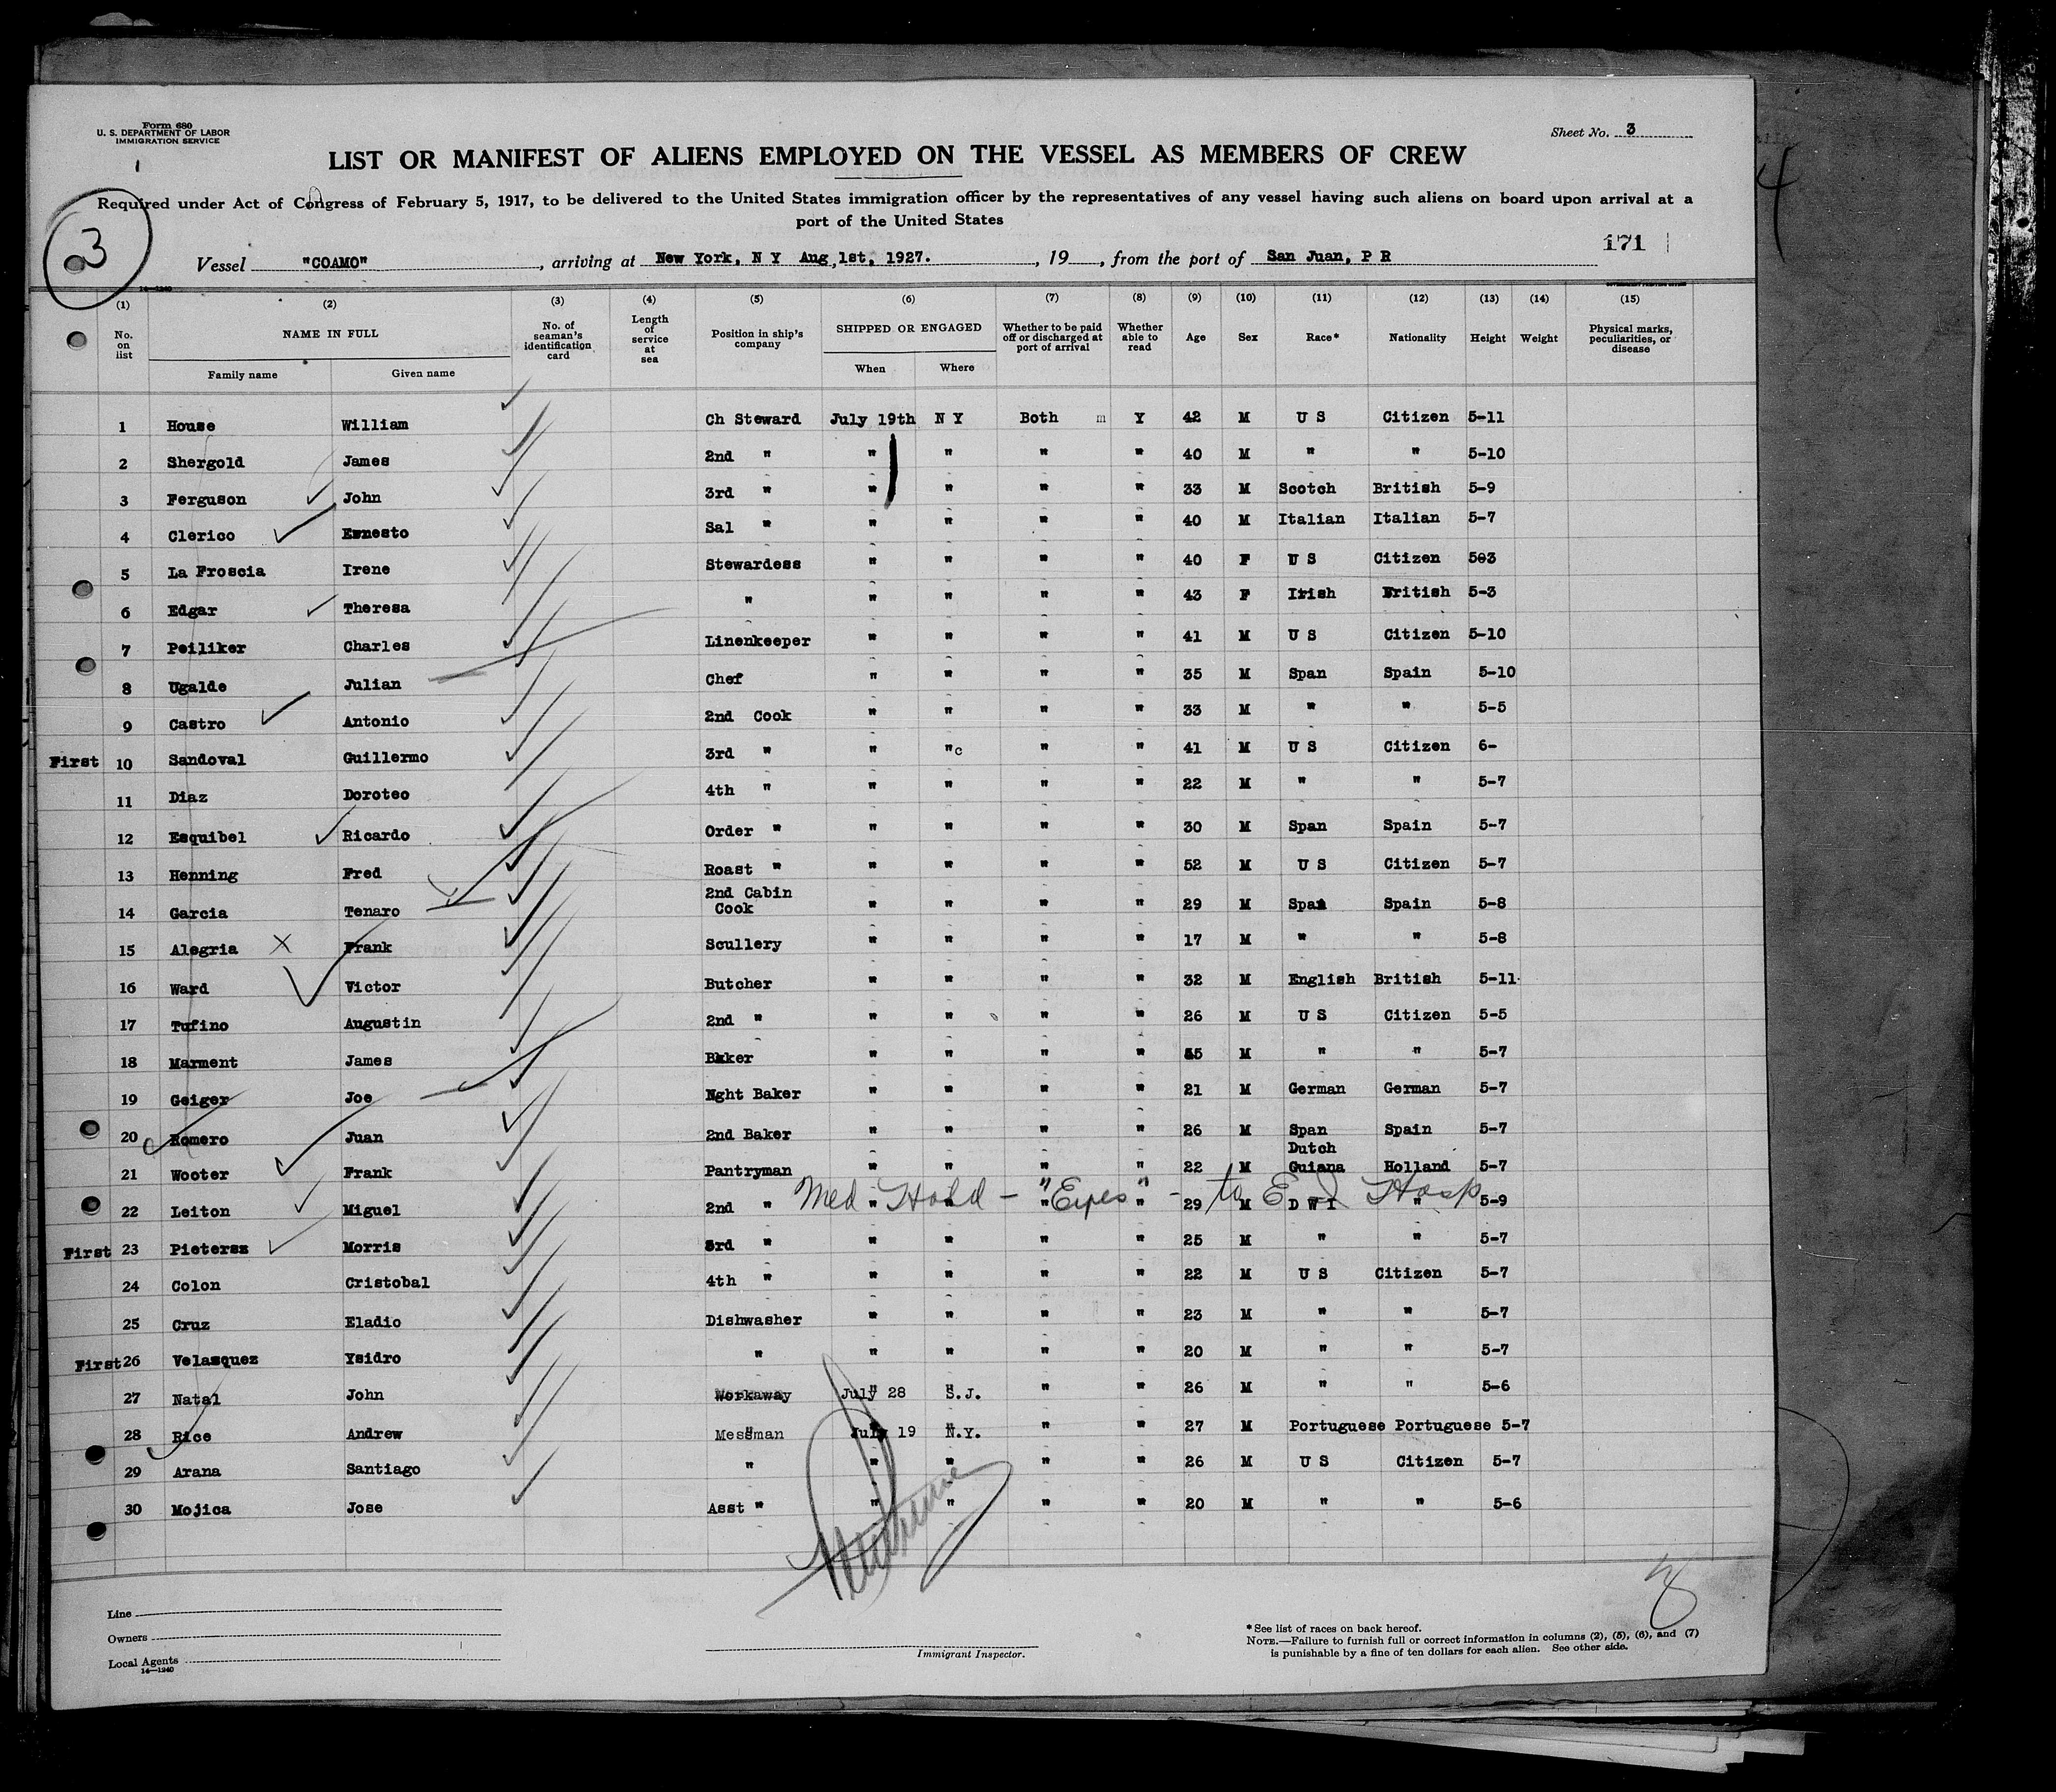 Form 680
U. S. DEPARTMENT OF LABOR
IMMIGRATION SERVICE
Sheet No. 3
LIST OR MANIFEST OF ALIENS EMPLOYED ON THE VESSEL AS MEMBERS OF CREW
Required under Act of Congress of February 5, 1917, to be delivered to the United States immigration officer by the representatives of any vessel having such aliens on board upon arrival at a
port of the United States
3
4
171
Vessel "COAMO", arriving at New York, N Y Aug,1st, 1927., 19, from the port of San Juan, P R
14—1240
(1) (2) (3) (4) (5) (6) (7) (8) (9) (10) (11) (12) (13) (14) (15)
No. on list NAME IN FULL No. of seaman's identification card Length of service at sea Position in ship's company SHIPPED OR ENGAGED Whether to be paid off or discharged at port of arrival Whether able to read Age Sex Race* Nationality Height Weight Physical marks, peculiarities, or disease
Family name Given name When Where
1 House William Ch Steward July 19th N Y Both m Y 42 M U S Citizen 5-11
2 Shergold James 2nd " " " " " 40 M " " 5-10
3 Ferguson John 3rd " " " " " 33 M Scotch British 5-9
4 Clerico Ernesto Sal " " " " " 40 M Italian Italian 5-7
5 La Froscia Irene Stewardess " " " " 40 F U S Citizen 503
6 Edgar Theresa " " " " " 43 F Irish British 5-3
7 Peiliker Charles Linenkeeper " " " " 41 M U S Citizen 5-10
8 Ugalde Julian Chef " " " " 35 M Span Spain 5-10
9 Castro Antonio 2nd Cook " " " " 33 M " " 5-5
First 10 Sandoval Guillermo 3rd " " "c " " 41 M U S Citizen 6-
11 Diaz Doroteo 4th " " " " " 22 M " " 5-7
12 Esquibel Ricardo Order " " " " " 30 M Span Spain 5-7
13 Henning Fred Roast " " " " " 52 M U S Citizen 5-7
14 Garcia Tenaro 2nd Cabin Cook " " " " 29 M Span Spain 5-8
15 Alegria X Frank Scullery " " " " 17 M " " 5-8
16 Ward Victor Butcher " " " " 32 M English British 5-11
17 Tufino Augustin 2nd " " " " " 26 M U S Citizen 5-5
18 Marment James Baker " " " " 55 M " " 5-7
19 Geiger Joe Nght Baker " " " " 21 M German German 5-7
20 Romero Juan 2nd Baker " " " " 26 M Span Spain 5-7
21 Wooter Frank Pantryman " " " " 22 M Dutch Guiana Holland 5-7
Med Hold - "Eyes" - to E I Hosp
22 Leiton Miguel 2nd " " " " " 29 M D W I " 5-9
First 23 Pietersz Morris 3rd " " " " " 25 M " " 5-7
24 Colon Cristobal 4th " " " " " 22 M U S Citizen 5-7
25 Cruz Eladio Dishwasher " " " " 23 M " " 5-7
First 26 Velasquez Ysidro " " " " " 20 M " " 5-7
27 Natal John Workaway July 28 S.J. " " 26 M " " 5-6
28 Rice Andrew Messman July 19 N.Y. " " 27 M Portuguese Portuguese 5-7
29 Arana Santiago " " " " " 26 M U S Citizen 5-7
30 Mojica Jose Asst " " " " " 20 M " " 5-6
Line
Owners
Local Agents
14—1240
Immigrant Inspector.
*See list of races on back hereof.
NOTE.—Failure to furnish full or correct information in columns (2), (5), (6), and (7)
is punishable by a fine of ten dollars for each alien. See other side.